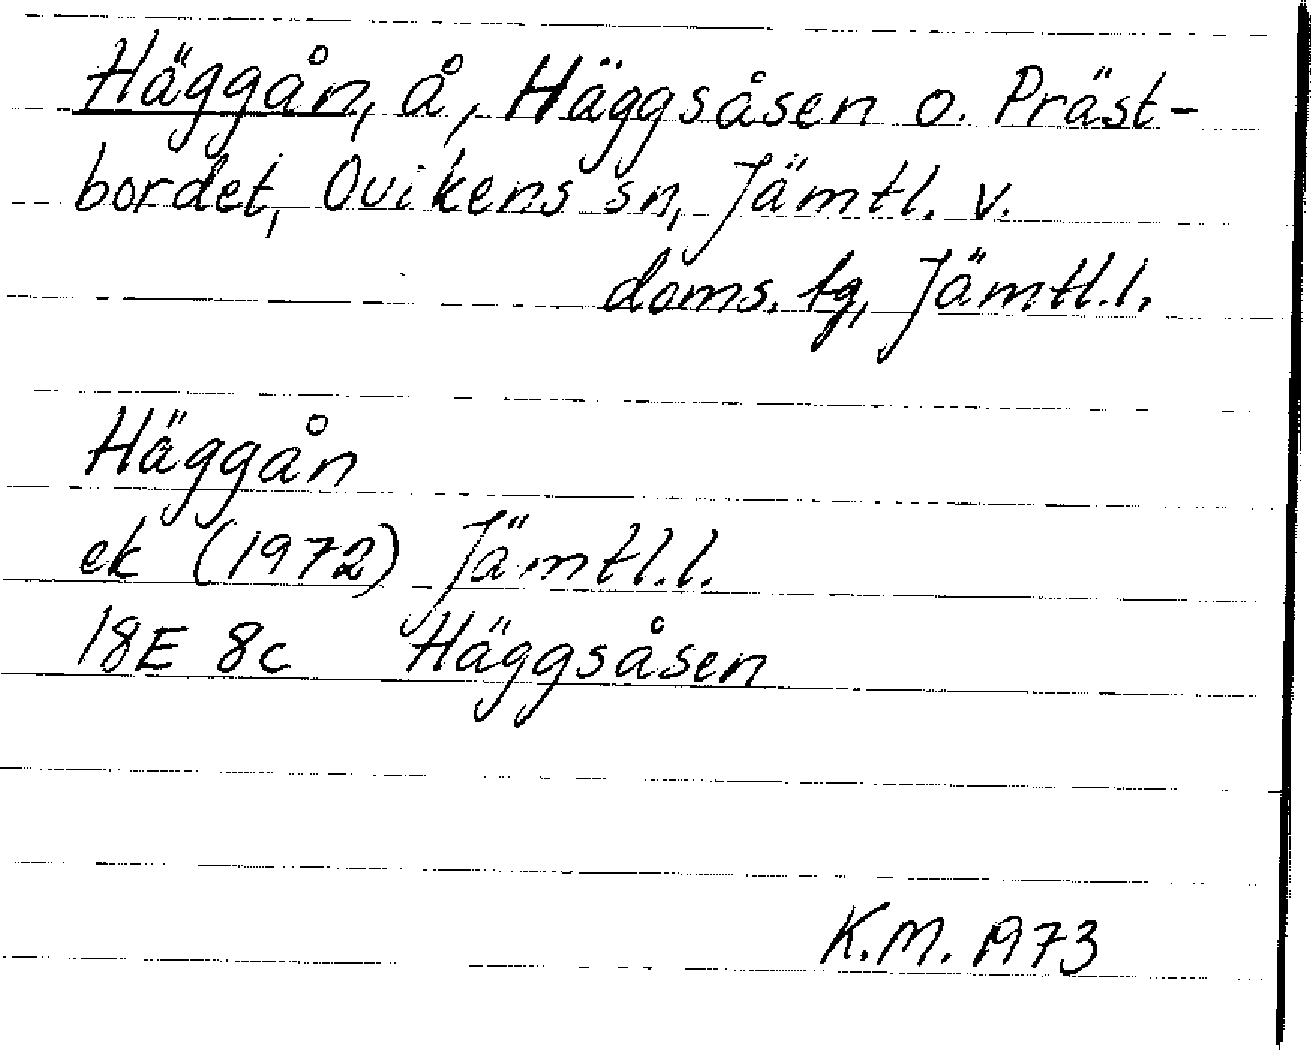 Häggån, å, Häggsåsen o. Präst-
bordet, Ovikens sn, Jämtl. v.
doms. tg, Jämtl.l.
Häggån
ek (1972) Jämtl.l.
18E 8c Häggsåsen
K.M. 1973